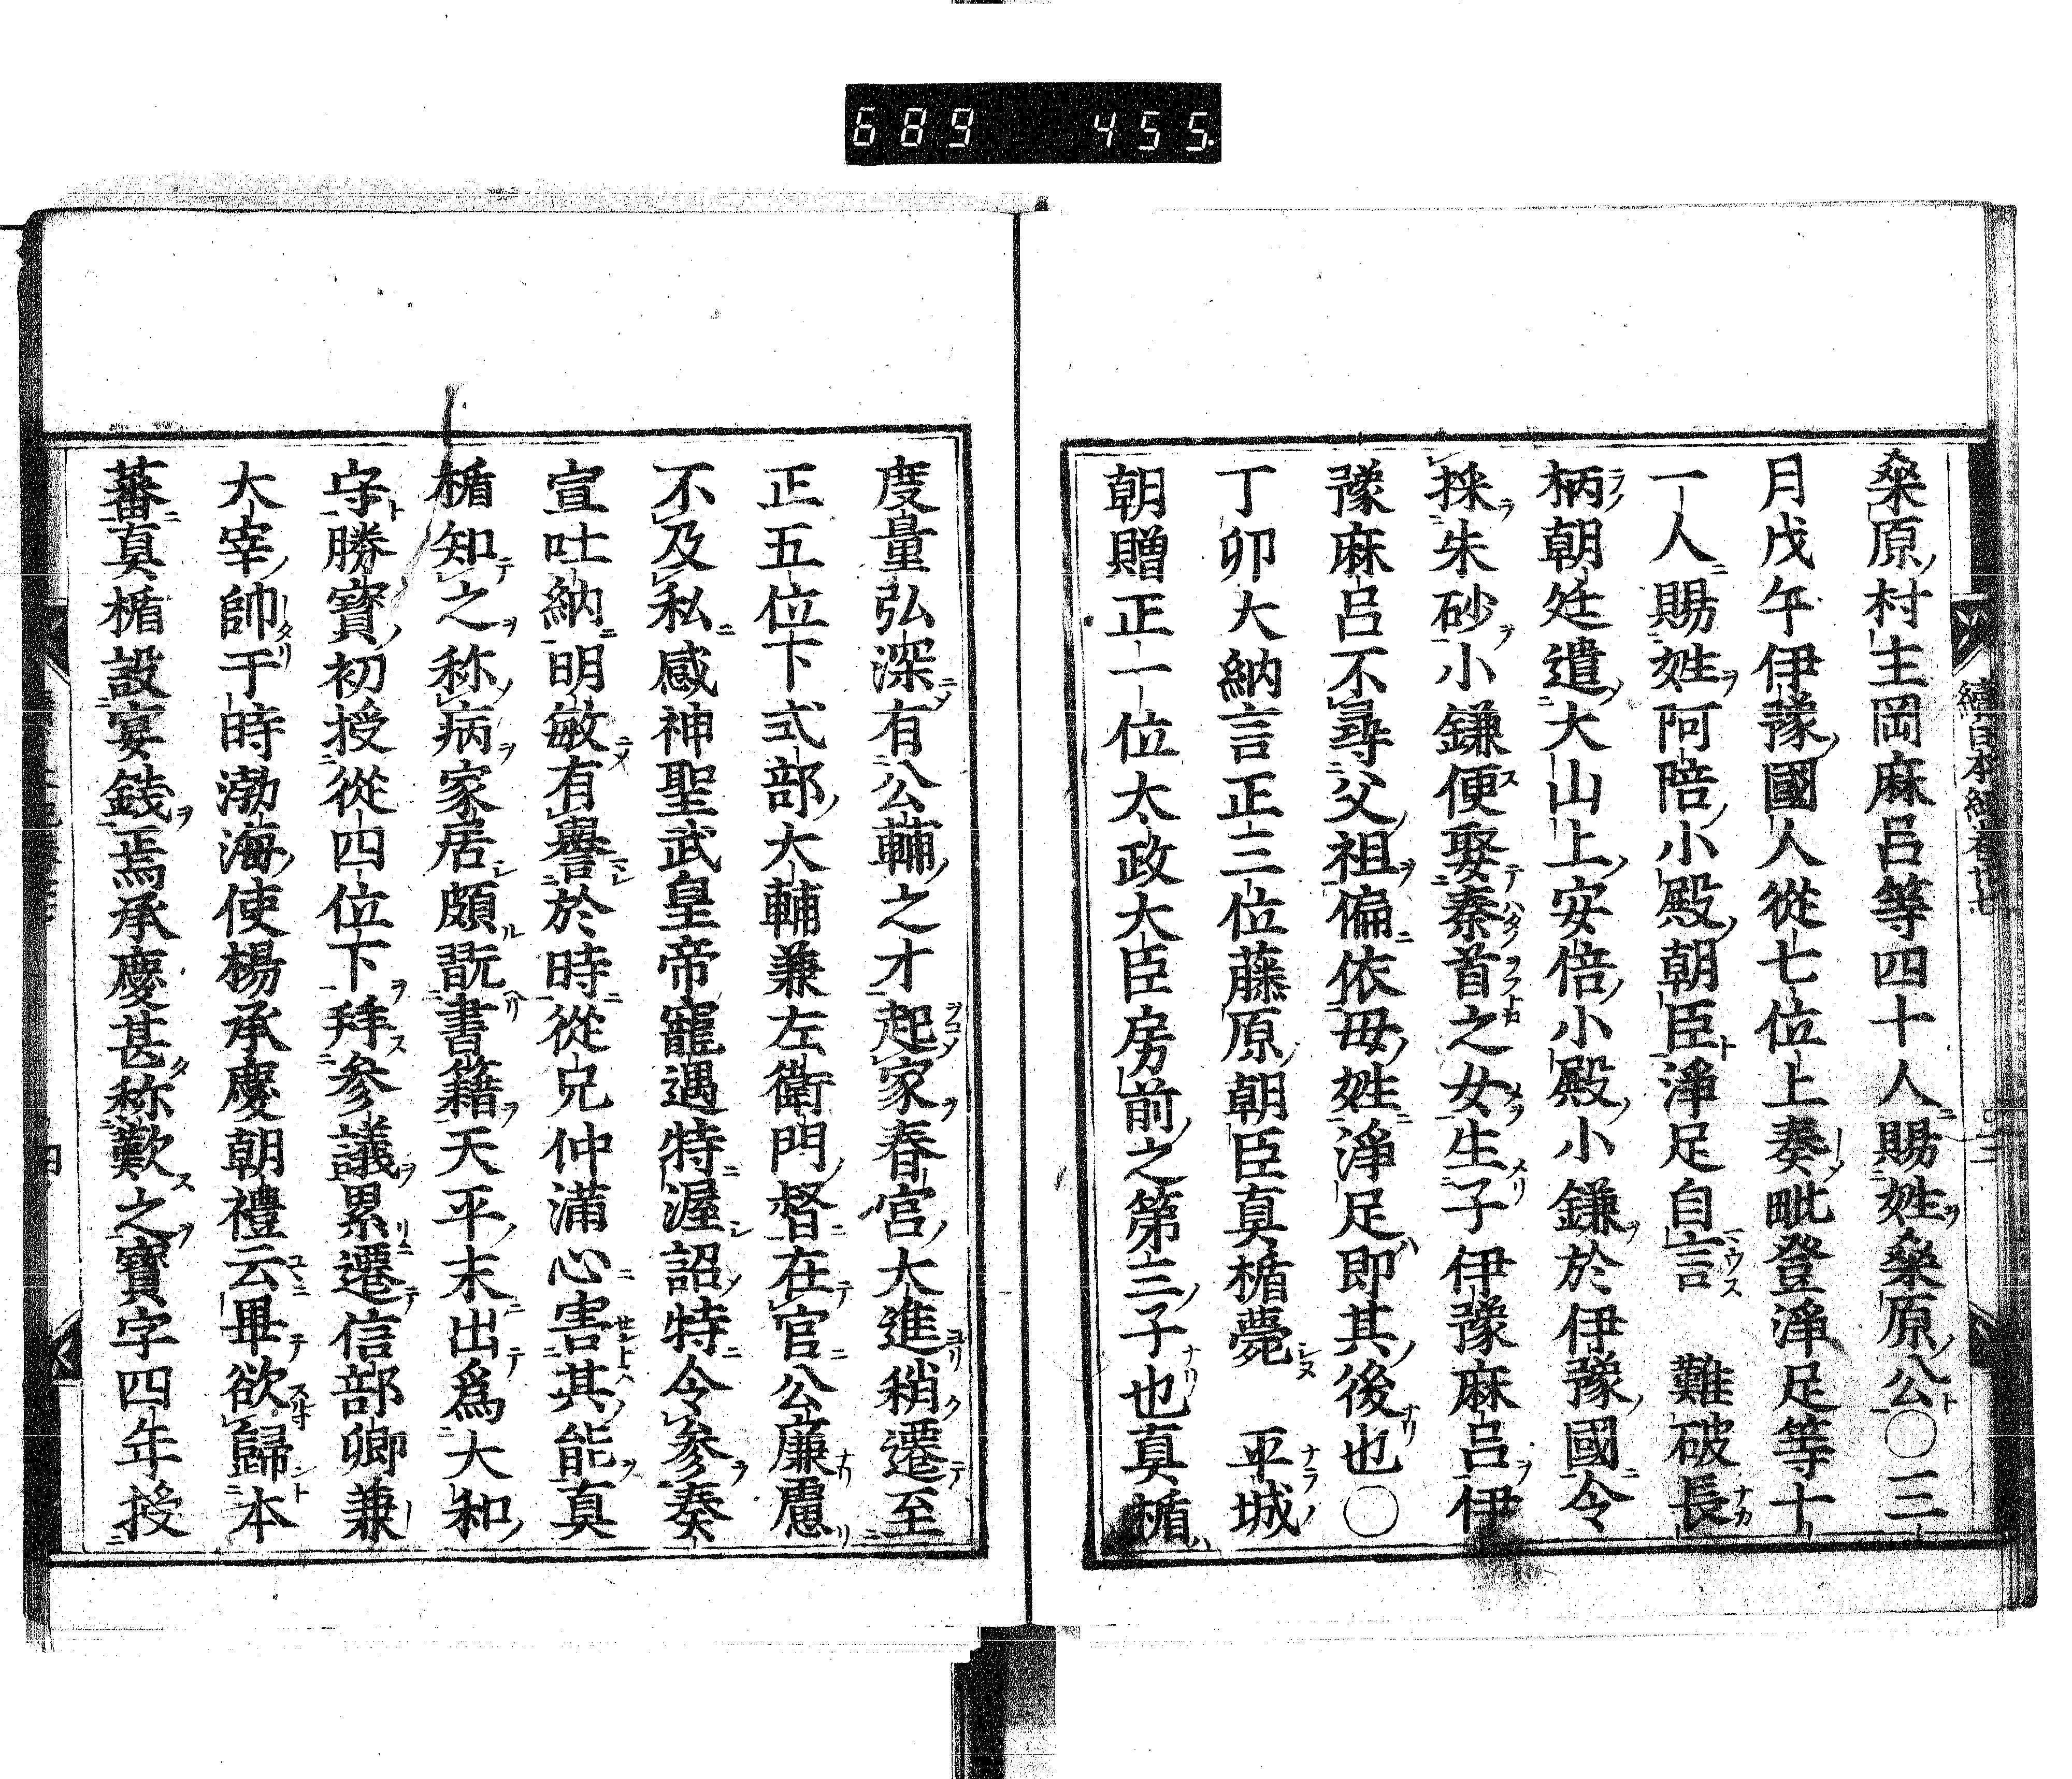 689 455
桑原村主岡麻呂等四十人賜姓桑原公〇三
月戊午伊豫國人從七位上秦毗登淨足等十
一人賜姓阿陪小殿朝臣淨足自言 難破長
柄朝廷遣大山上安倍小殿小鎌於伊豫國令
採朱砂小鎌便娶秦首之女生子伊豫麻呂伊
豫麻呂不尋父祖偏依母姓淨足即其後也〇
丁卯大納言正三位藤原朝臣真楯薨 平城
朝贈正一位太政大臣房前之第三子也真楯
度量弘深有公輔之才起家春宮大進稍遷至
正五位下式部大輔兼左衛門督在官公廉慮
不及私感神聖武皇帝寵遇特渥詔特令參奏
宣吐納明敏有譽於時從兄仲滿心害其能真
楯知之称病家居頗翫書籍天平末出爲大和
守勝寶初授從四位下拜參議累遷信部卿兼
大宰帥于時渤海使楊承慶朝禮云畢欲歸本
蕃真楯設宴餞焉承慶甚称歎之寶字四年授